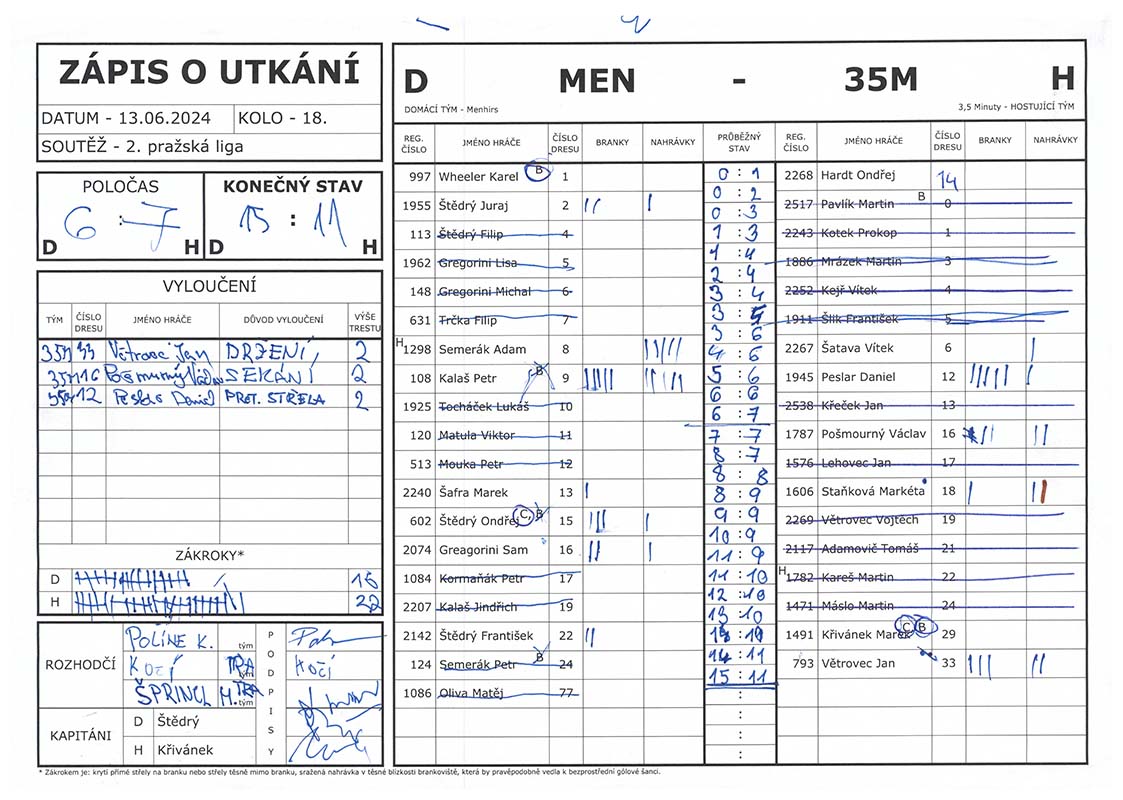 ZÁPIS O UTKÁNÍ
DATUM - 13.06.2024 KOLO - 18.
SOUTĚŽ - 2. pražská liga
POLOČAS KONEČNÝ STAV
6 : 7 15 : 11
D H D H
VYLOUČENÍ
TÝM ČÍSLO DRESU JMÉNO HRÁČE DŮVOD VYLOUČENÍ VÝŠE TRESTU
35M 33 Větrovec Jan DRŽENÍ 2
35M 16 Pošmourný Václav SEKÁNÍ 2
35M 12 Peslar Daniel PROT. STŘELA 2
ZÁKROKY*
D 16
H 22
ROZHODČÍ
POLÍNE K. tým
KOČÍ TRA tým KOČÍ
ŠPRINCL M. TRA tým
PODPISY
KAPITÁNI
D Štědrý
H Křivánek
D MEN - 35M H
DOMÁCÍ TÝM - Menhirs 3,5 Minuty - HOSTUJÍCÍ TÝM
REG. ČÍSLO JMÉNO HRÁČE ČÍSLO DRESU BRANKY NAHRÁVKY PRŮBĚŽNÝ STAV REG. ČÍSLO JMÉNO HRÁČE ČÍSLO DRESU BRANKY NAHRÁVKY
997 Wheeler Karel B 1
1955 Štědrý Juraj 2
113 Štědrý Filip 4
1962 Gregorini Lisa 5
148 Gregorini Michal 6
631 Trčka Filip 7
H 1298 Semerák Adam 8
108 Kalaš Petr B 9
1925 Tocháček Lukáš 10
120 Matula Viktor 11
513 Mouka Petr 12
2240 Šafra Marek 13
602 Štědrý Ondřej C, B 15
2074 Greagorini Sam 16
1084 Kormaňák Petr 17
2207 Kalaš Jindřich 19
2142 Štědrý František 22
124 Semerák Petr B 24
1086 Oliva Matěj 77
0 : 1
0 : 2
0 : 3
1 : 3
1 : 4
2 : 4
3 : 4
3 : 5
3 : 6
4 : 6
5 : 6
6 : 6
6 : 7
7 : 7
8 : 7
8 : 8
8 : 9
9 : 9
10 : 9
11 : 9
11 : 10
12 : 10
13 : 10
14 : 10
14 : 11
15 : 11
:
:
:
2268 Hardt Ondřej 14
2517 Pavlík Martin B 0
2243 Kotek Prokop 1
1886 Mrázek Martin 3
2252 Kejř Vítek 4
1911 Šlik František 5
2267 Šatava Vítek 6
1945 Peslar Daniel 12
2538 Křeček Jan 13
1787 Pošmourný Václav 16
1576 Lehovec Jan 17
1606 Staňková Markéta 18
2269 Větrovec Vojtech 19
2117 Adamovič Tomáš 21
H 1782 Kareš Martin 22
1471 Máslo Martin 24
1491 Křivánek Marek C B 29
793 Větrovec Jan 33
* Zákrokem je: krytí přímé střely na branku nebo střely těsně mimo branku, sražená nahrávka v těsné blízkosti brankoviště, která by pravěpodobně vedla k bezprostřední gólové šanci.